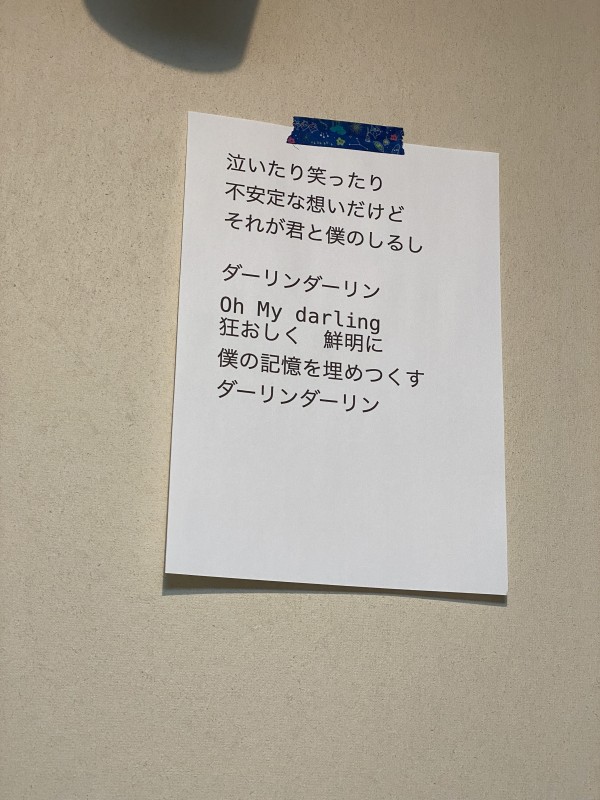 泣いたり笑ったり
不安定な想いだけど
それが君と僕のしるし
ダーリンダーリン
Oh My darling
狂おしく　鮮明に
僕の記憶を埋めつくす
ダーリンダーリン